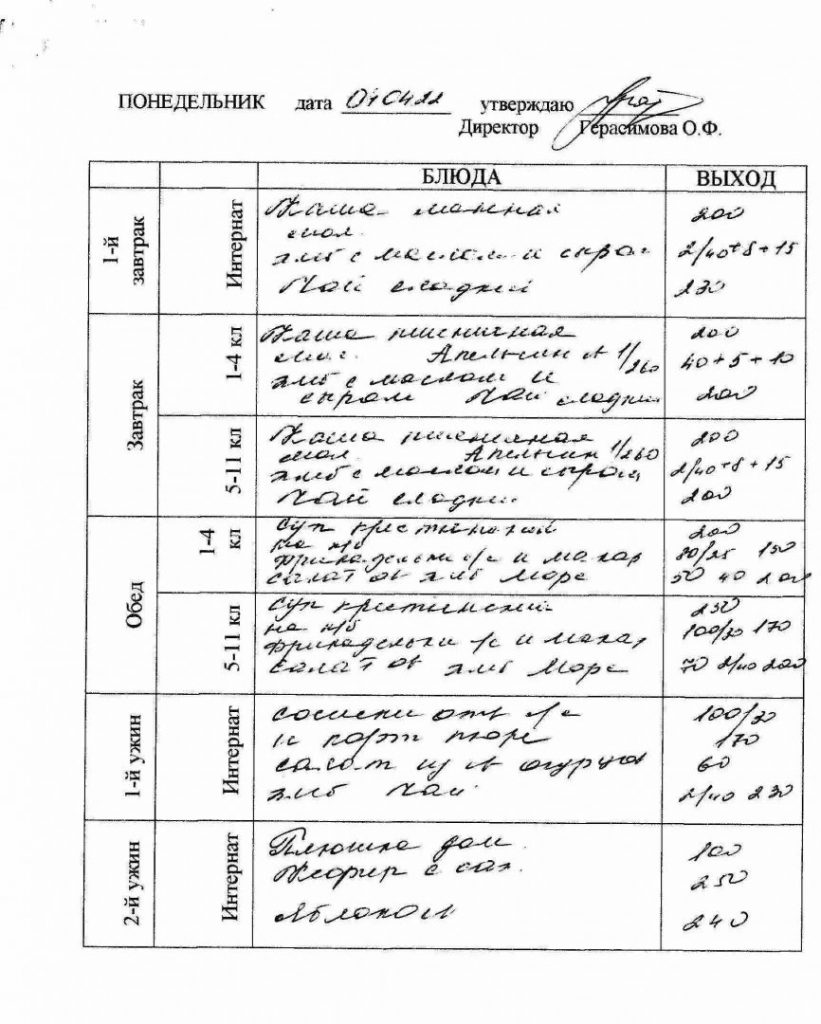 ПОНЕДЕЛЬНИК дата 04 04 22 утверждаю
Директор Герасимова О.Ф.
БЛЮДА ВЫХОД
1-й завтрак Интернат
Каша манная 200
мол.
хлб с маслом и сыром 2/40+8+15
Чай сладкий 230
Завтрак
1-4 кл
Каша пшеничная 200
мол. Апельсин 1/260 40+5+10
хлб с маслом и
сыром Чай сладкий 200
5-11 кл
Каша пшеничная 200
мол. Апельсин 1/260
хлб с маслом и сыром 2/40+8+15
Чай сладкий 200
Обед
1-4 кл
Суп крестьянский 200
на к/б 80/25 150
фрикадельки /с и макар
салат ов хлб Морс 50 40 200
5-11 кл
Суп крестьянский 250
на к/б 100/30 170
фрикадельки /с и макар
салат ов хлб Морс 70 2/40 200
1-й ужин Интернат
сосиски отв /с 100/30
и карт пюре 170
салат из огурцов 60
хлб Чай 2/40 230
2-й ужин Интернат
Плюшка дом. 100
Кефир с сах. 250
Яблоко 240